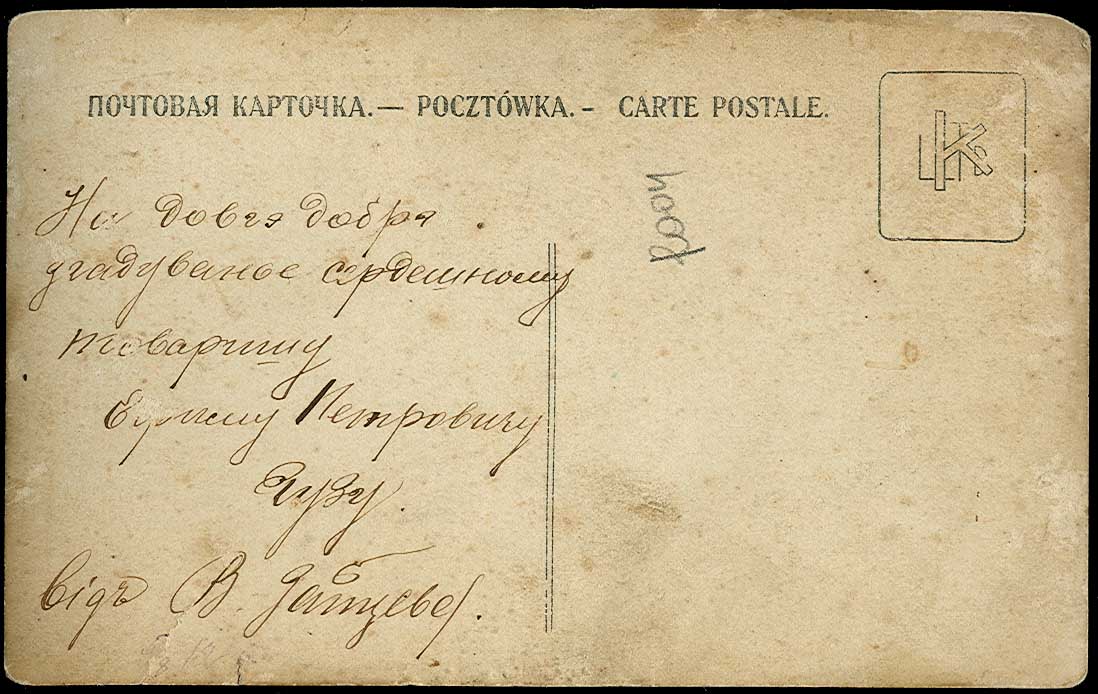 ПОЧТОВАЯ КАРТОЧКА.— POCZTÓWKA.- CARTE POSTALE.
На довге добре
згадуванье сердешному
товаришу
Петровичу
Гузу.
Відъ В. Зайцева.